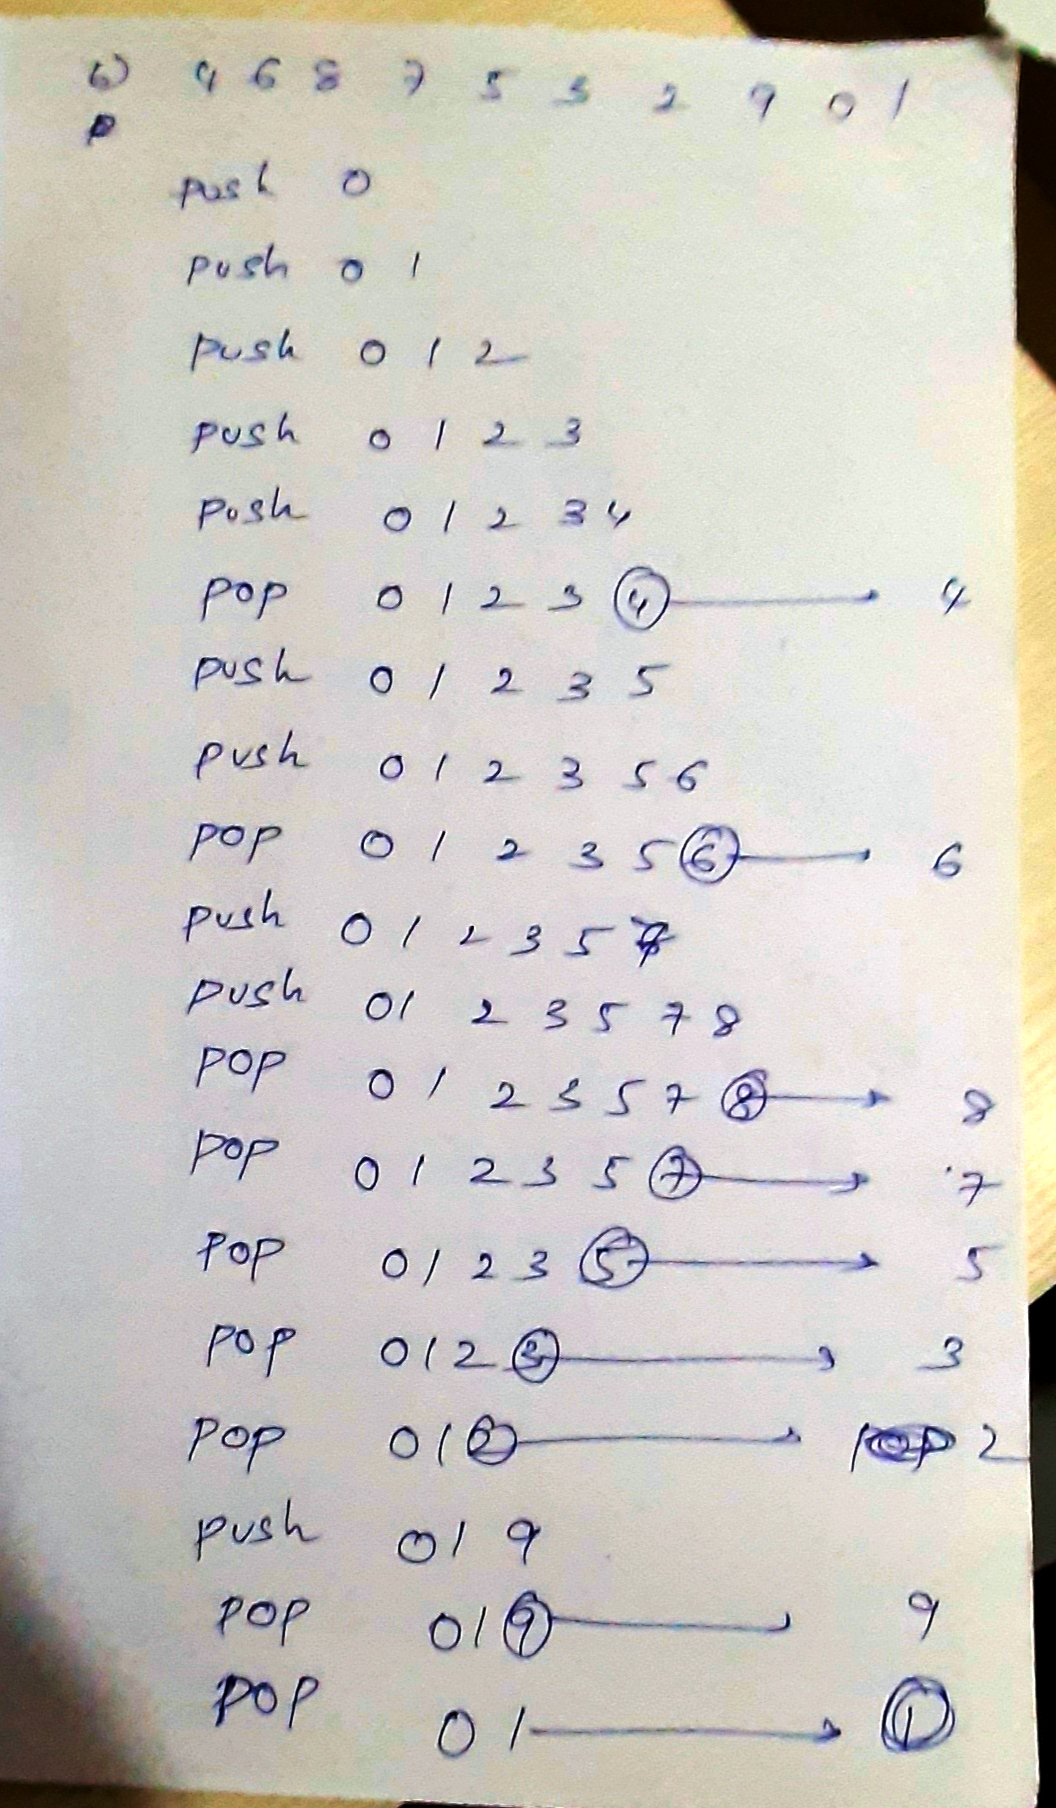 b) 4 6 8 7 5 3 2 9 0 1
P
push 0
push 0 1
push 0 1 2
push 0 1 2 3
push 0 1 2 3 4
pop 0 1 2 3 4 → 4
push 0 1 2 3 5
push 0 1 2 3 5 6
pop 0 1 2 3 5 6 → 6
push 0 1 2 3 5 7
push 0 1 2 3 5 7 8
pop 0 1 2 3 5 7 8 → 8
pop 0 1 2 3 5 7 → 7
pop 0 1 2 3 5 → 5
pop 0 1 2 3 → 3
pop 0 1 2 → 2
push 0 1 9
pop 0 1 9 → 9
pop 0 1 → 1